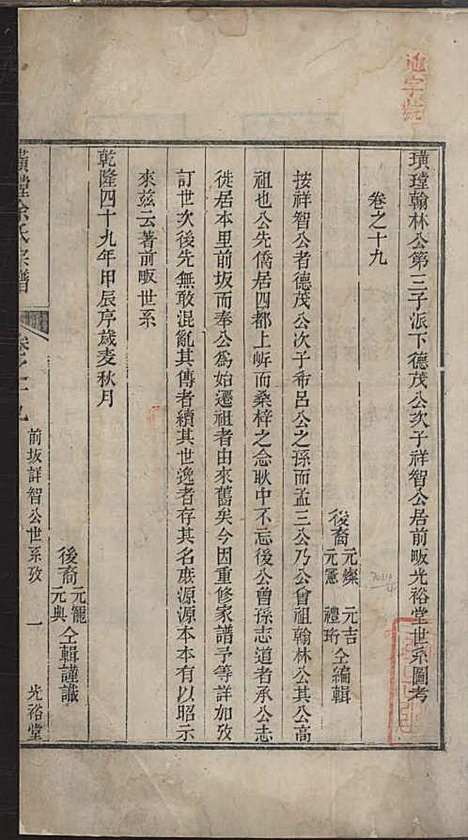 璜瑝翰林公第三子派下德茂公次子祥智公居前畈光裕堂世系圖考
卷之十九
後裔 元燦 元吉 元憲 禮珩 仝編輯
按祥智公者德茂公次子希呂公之孫而孟三公乃公曾祖翰林公其公高
祖也公先僑居四都上㟁而桑梓之念耿中不忘後公曾孫志道者承公志
徙居本里前坂而奉公爲始遷祖者由來舊矣今因重修家譜予等詳加攷
訂世次後先無敢混亂其傳者續其世逸者存其名庻源源本本有以昭示
來茲云著前畈世系
乾隆四十九年甲辰序歲麦秋月
後裔 元龍 元興 仝輯謹識
璜瑝余氏宗譜
卷之十九
前坂詳智公世系攷
一
光裕堂
地字號